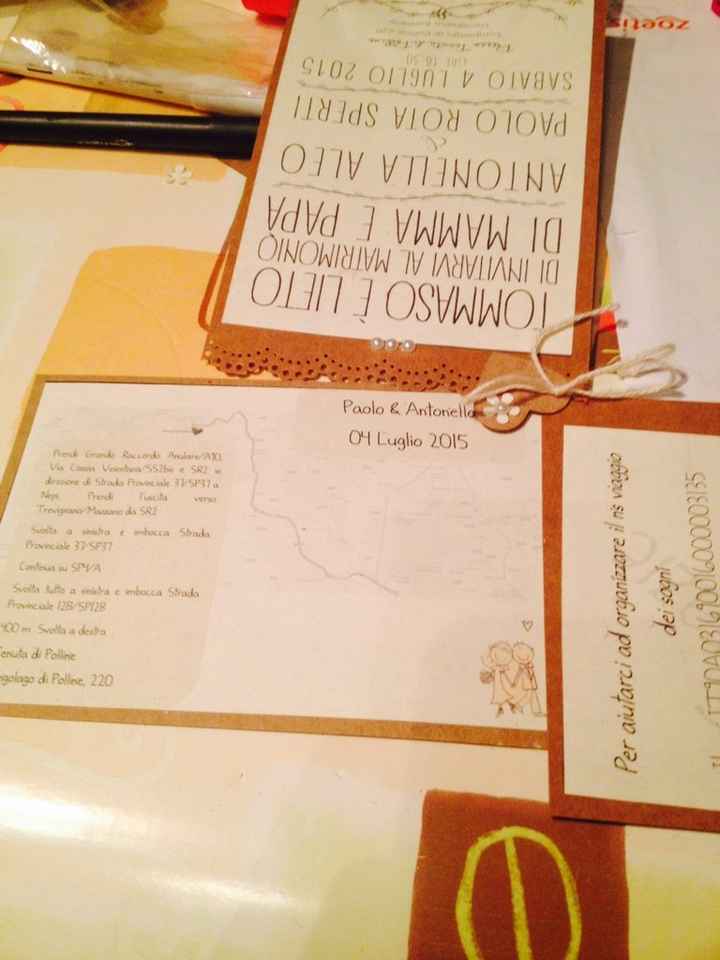 TOMMASO È LIETO
DI INVITARVI AL MATRIMONIO
DI MAMMA E PAPÀ
ANTONELLA ALEO
&
PAOLO ROTA SPERTI
SABATO 4 LUGLIO 2015
ORE 16.30
zoetis
Paolo & Antonella
04 Luglio 2015
Prendi Grande Raccordo Anulare/A90,
Via Cassia Veientana/SS2bis e SR2 in
direzione di Strada Provinciale 37/SP37 a
Nepi. Prendi l'uscita verso
Trevignano/Mazzano da SR2
Svolta a sinistra e imbocca Strada
Provinciale 37/SP37
Continua su SP4/A
Svolta tutto a sinistra e imbocca Strada
Provinciale 12B/SP12B
400 m Svolta a destra
Tenuta di Polline
ngolago di Polline, 220
Per aiutarci ad organizzare il ns viaggio
dei sogni